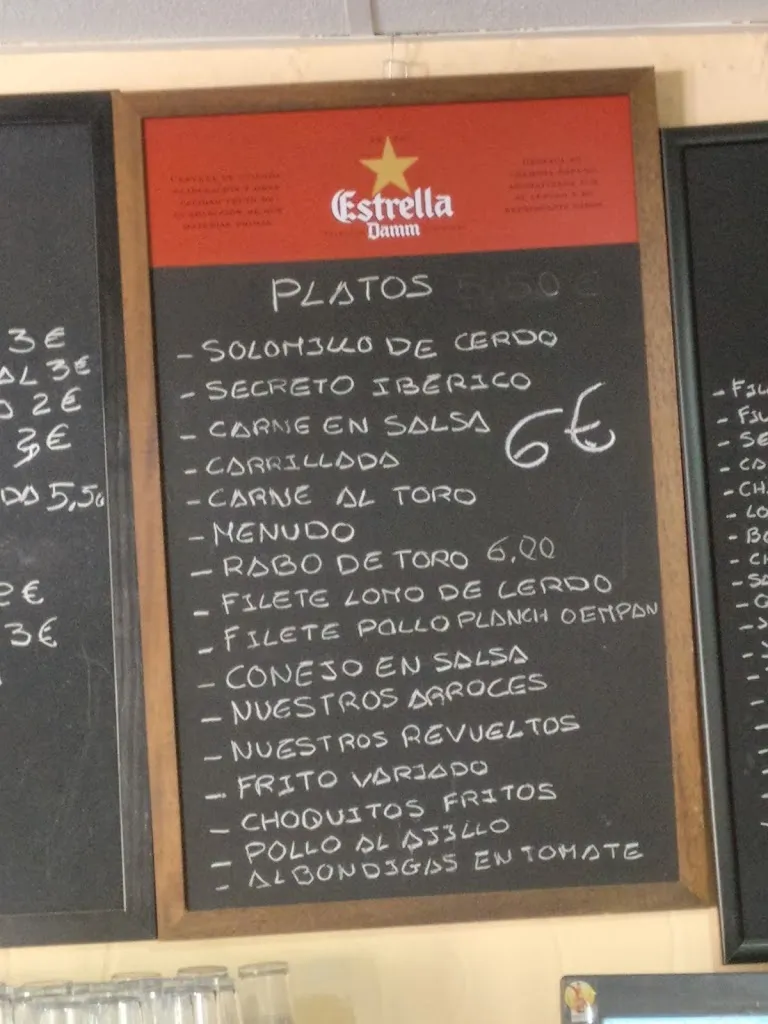 Estrella
Damm
PLATOS 5,50 €
- SOLOMILLO DE CERDO
- SECRETO IBERICO
- CARNE EN SALSA
6€
- CARRILLADA
- CARNE AL TORO
- MENUDO
- RABO DE TORO 6,00
- FILETE LOMO DE CERDO
- FILETE POLLO PLANCH O EMPAN
- CONEJO EN SALSA
- NUESTROS ARROCES
- NUESTROS REVUELTOS
- FRITO VARIADO
- CHOQUITOS FRITOS
- POLLO AL AJILLO
- ALBONDIGAS EN TOMATE
3€
AL 3€
2€
3€
DA 5,50
2€
3€
- FIL
- FIL
- SE
- CA
- CH
- LO
- BO
- CH
- SA